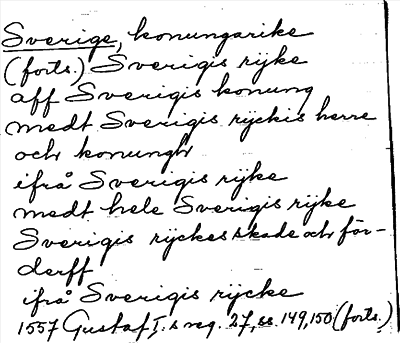 Sverige, konungarike
(forts.) Sverigis rijke
aff Sverigis konung
medt Sverigis rijckis herre
och konungh
ifrå Sverigis rijke
medt hele Sverigis rijke
Sverigis ryckes skade och för-
derff
ifrå Sverigis rijcke
1557 Gustaf I. s reg. 27, ss. 149, 150 (forts.)